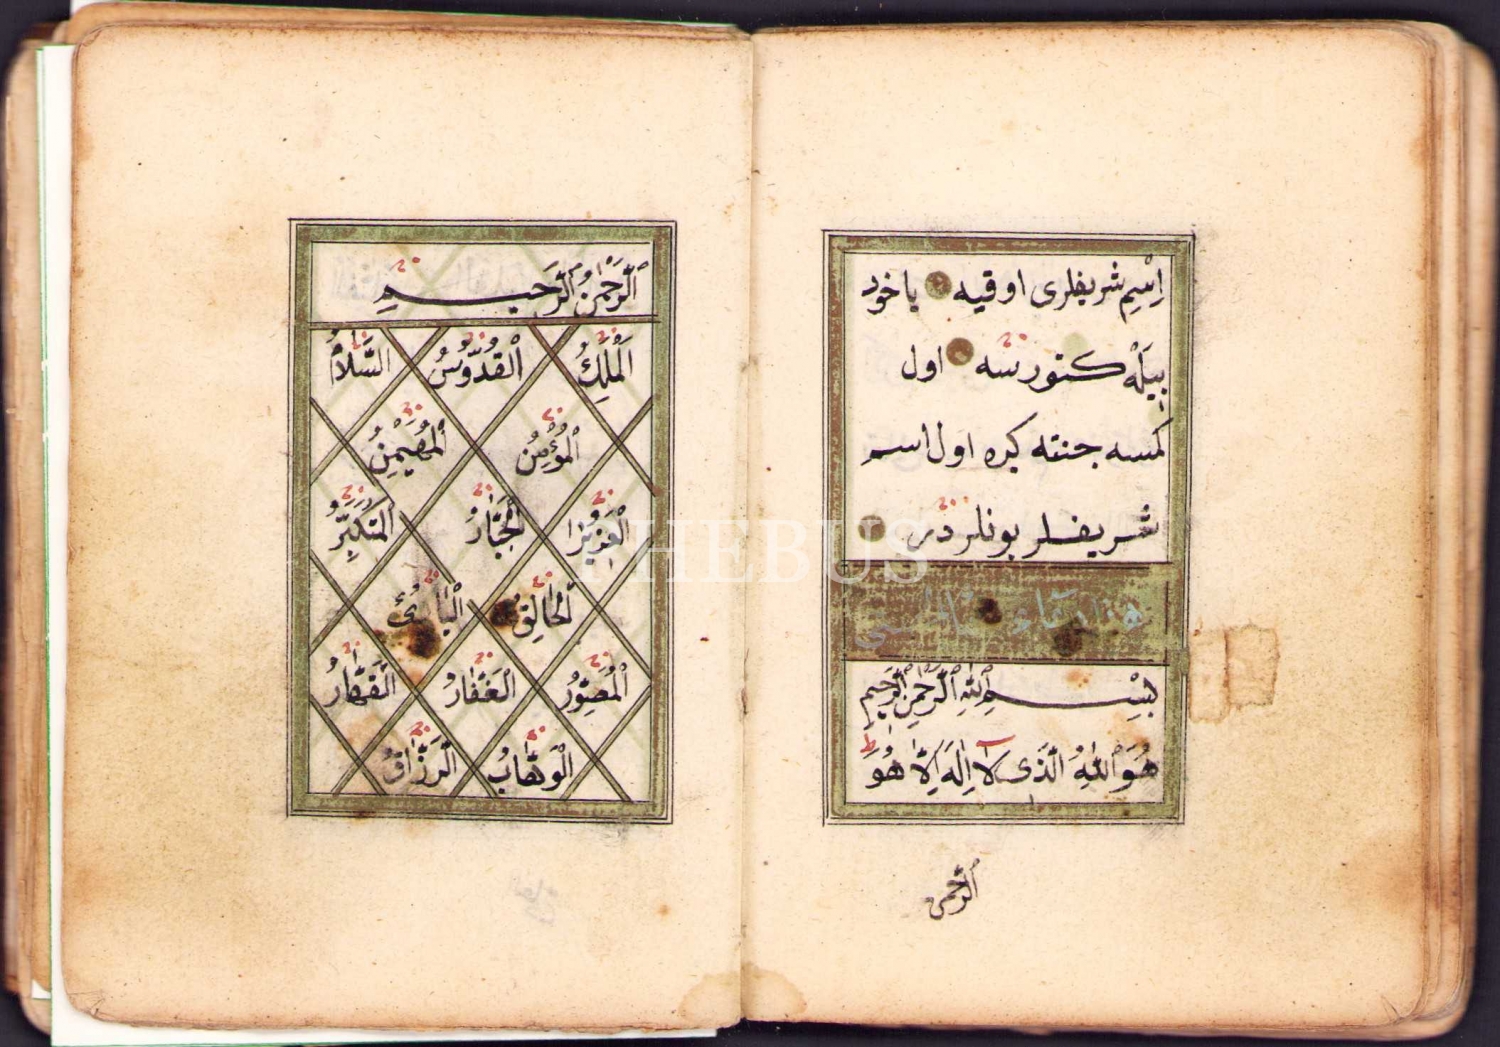 اِسْمِ شريفلرى اوقيه ياخود
بيلَهْ كتورسه اول
كمسه جنته كيره اول اسم
شريفلر بونلردر
هذا اسماء
بِسْــمِ اللّٰهِ الرَّحْمٰنِ الرَّحِيمِ
هُوَ اللّٰهُ الَّذى لَا اِلٰهَ اِلَّا هُوَ
الرَّحْمن
الرَّحْمٰنُ الرَّحيـمُ
اَلْمَلِكُ الْقُدُّوسُ السَّلَامُ
الْمُؤْمِنُ الْمُهَيْمِنُ
الْعَزيزُ الْجَبَّارُ الْمُتَكَبِّرُ
الْخَالِقُ الْبَارِئُ
الْمُصَوِّرُ الْغَفَّارُ الْقَهَّارُ
الْوَهَّابُ الرَّزَّاقُ
PHEBUS